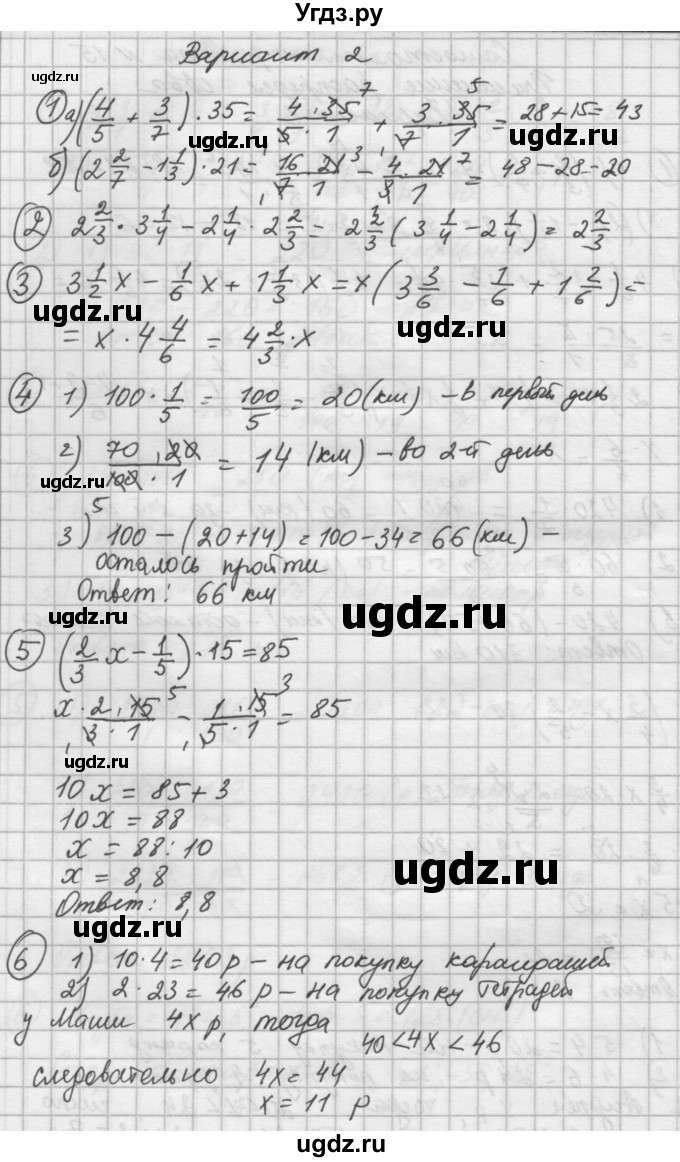 Угдз.ру
Вариант 2
ugdz.ru ugdz.ru
① а) (4/5 + 3/7) · 35 = 4 · 35 7 / 5 · 1 + 3 · 35 5 / 7 1 = 28 + 15 = 43
ugdz.ru
б) (2 2/7 − 1 1/3) · 21 = 16 · 21 3 / 7 1 − 4 · 21 7 / 3 1 = 48 − 28 = 20
② 2 2/3 · 3 1/4 − 2 1/4 · 2 2/3 = 2 2/3 (3 1/4 − 2 1/4) = 2 2/3
③ 3 1/2 x − 1/6 x + 1 1/3 x = x (3 3/6 − 1/6 + 1 2/6) =
ugdz.ru ugdz.ru
= x · 4 4/6 = 4 2/3 · x
④ 1) 100 · 1/5 = 100/5 = 20 (км) − в первый день
ugdz.ru
2) 70 · 20 / 100 · 1 = 14 (км) − во 2-й день
ugdz.ru
5
3) 100 − (20 + 14) = 100 − 34 = 66 (км) −
осталось пройти
Ответ: 66 км
ugdz.ru ugdz.ru
⑤ (2/3 x − 1/5) · 15 = 85
x · 2 · 15 5 / 3 · 1 − 1 · 15 3 / 5 · 1 = 85
ugdz.ru
10x = 85 + 3
10x = 88
x = 88 : 10
x = 8,8
ugdz.ru
Ответ: 8,8
ugdz.ru
⑥ 1) 10 · 4 = 40 р − на покупку карандашей
2) 2 · 23 = 46 р − на покупку тетрадей
у Маши 4x р, тогда
40 < 4x < 46
ugdz.ru
следовательно 4x = 44
x = 11 р
ugdz.ru
ugdz.ru